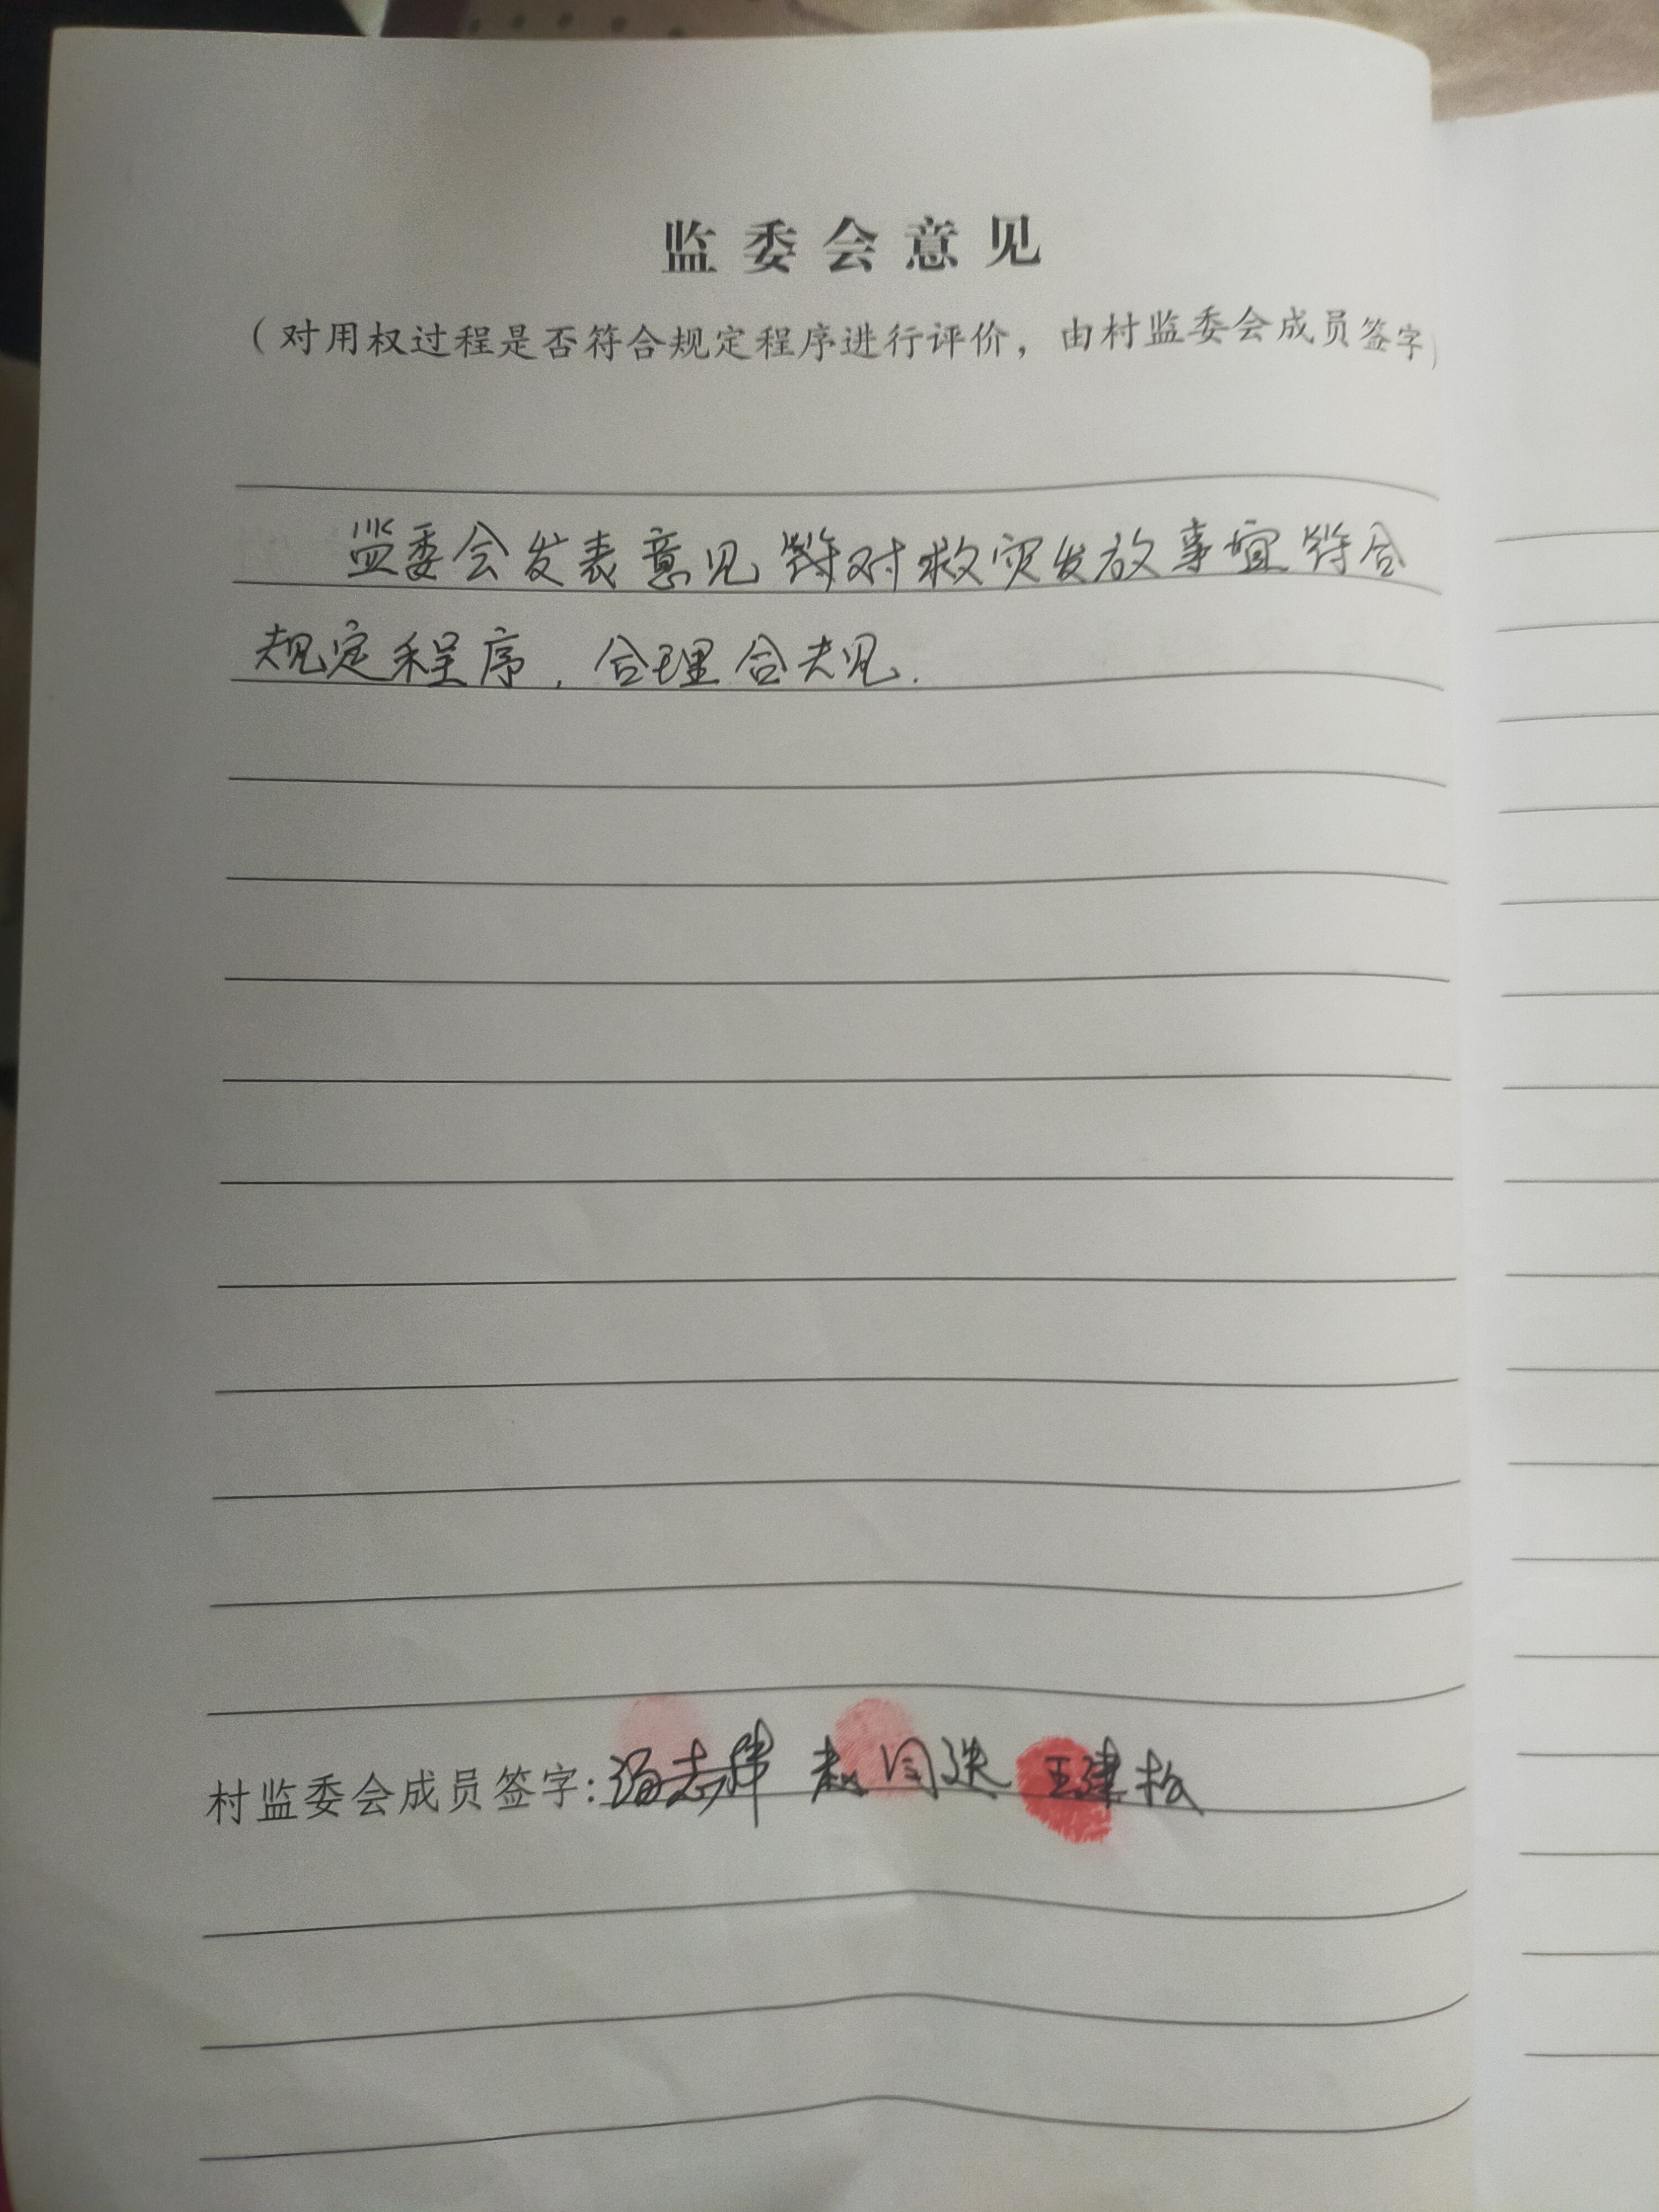 监委会意见
（对用权过程是否符合规定程序进行评价，由村监委会成员签字）
监委会发表意见 对救灾发放事宜符合
规定程序，合理合规.
村监委会成员签字: 冯志 赵 王建松